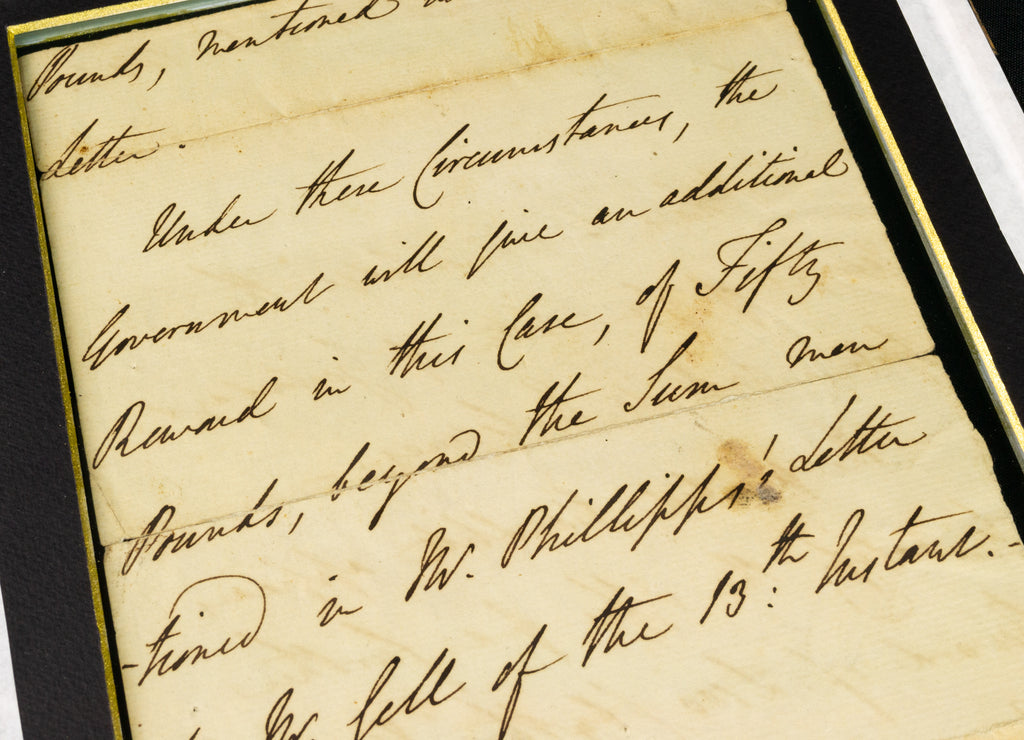 Pounds, mentioned in
Letter.
Under these Circumstances, the
Government will give an additional
Reward in this Case, of Fifty
Pounds, beyond the Sum men
-tioned in Mr. Phillipps's Letter
Mr. Gell of the 13:th Instant.-